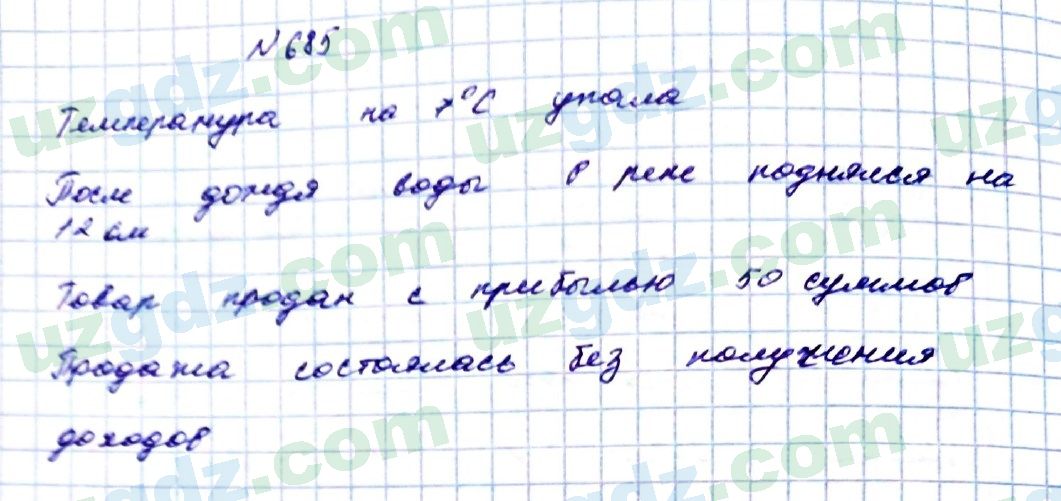 №685
Температура на 7°С упала
После дождя воды в реке поднялся на
12 см
Товар продан с прибылью 50 суммов
Продажа состоялась без получения
доходов
uzgdz.com